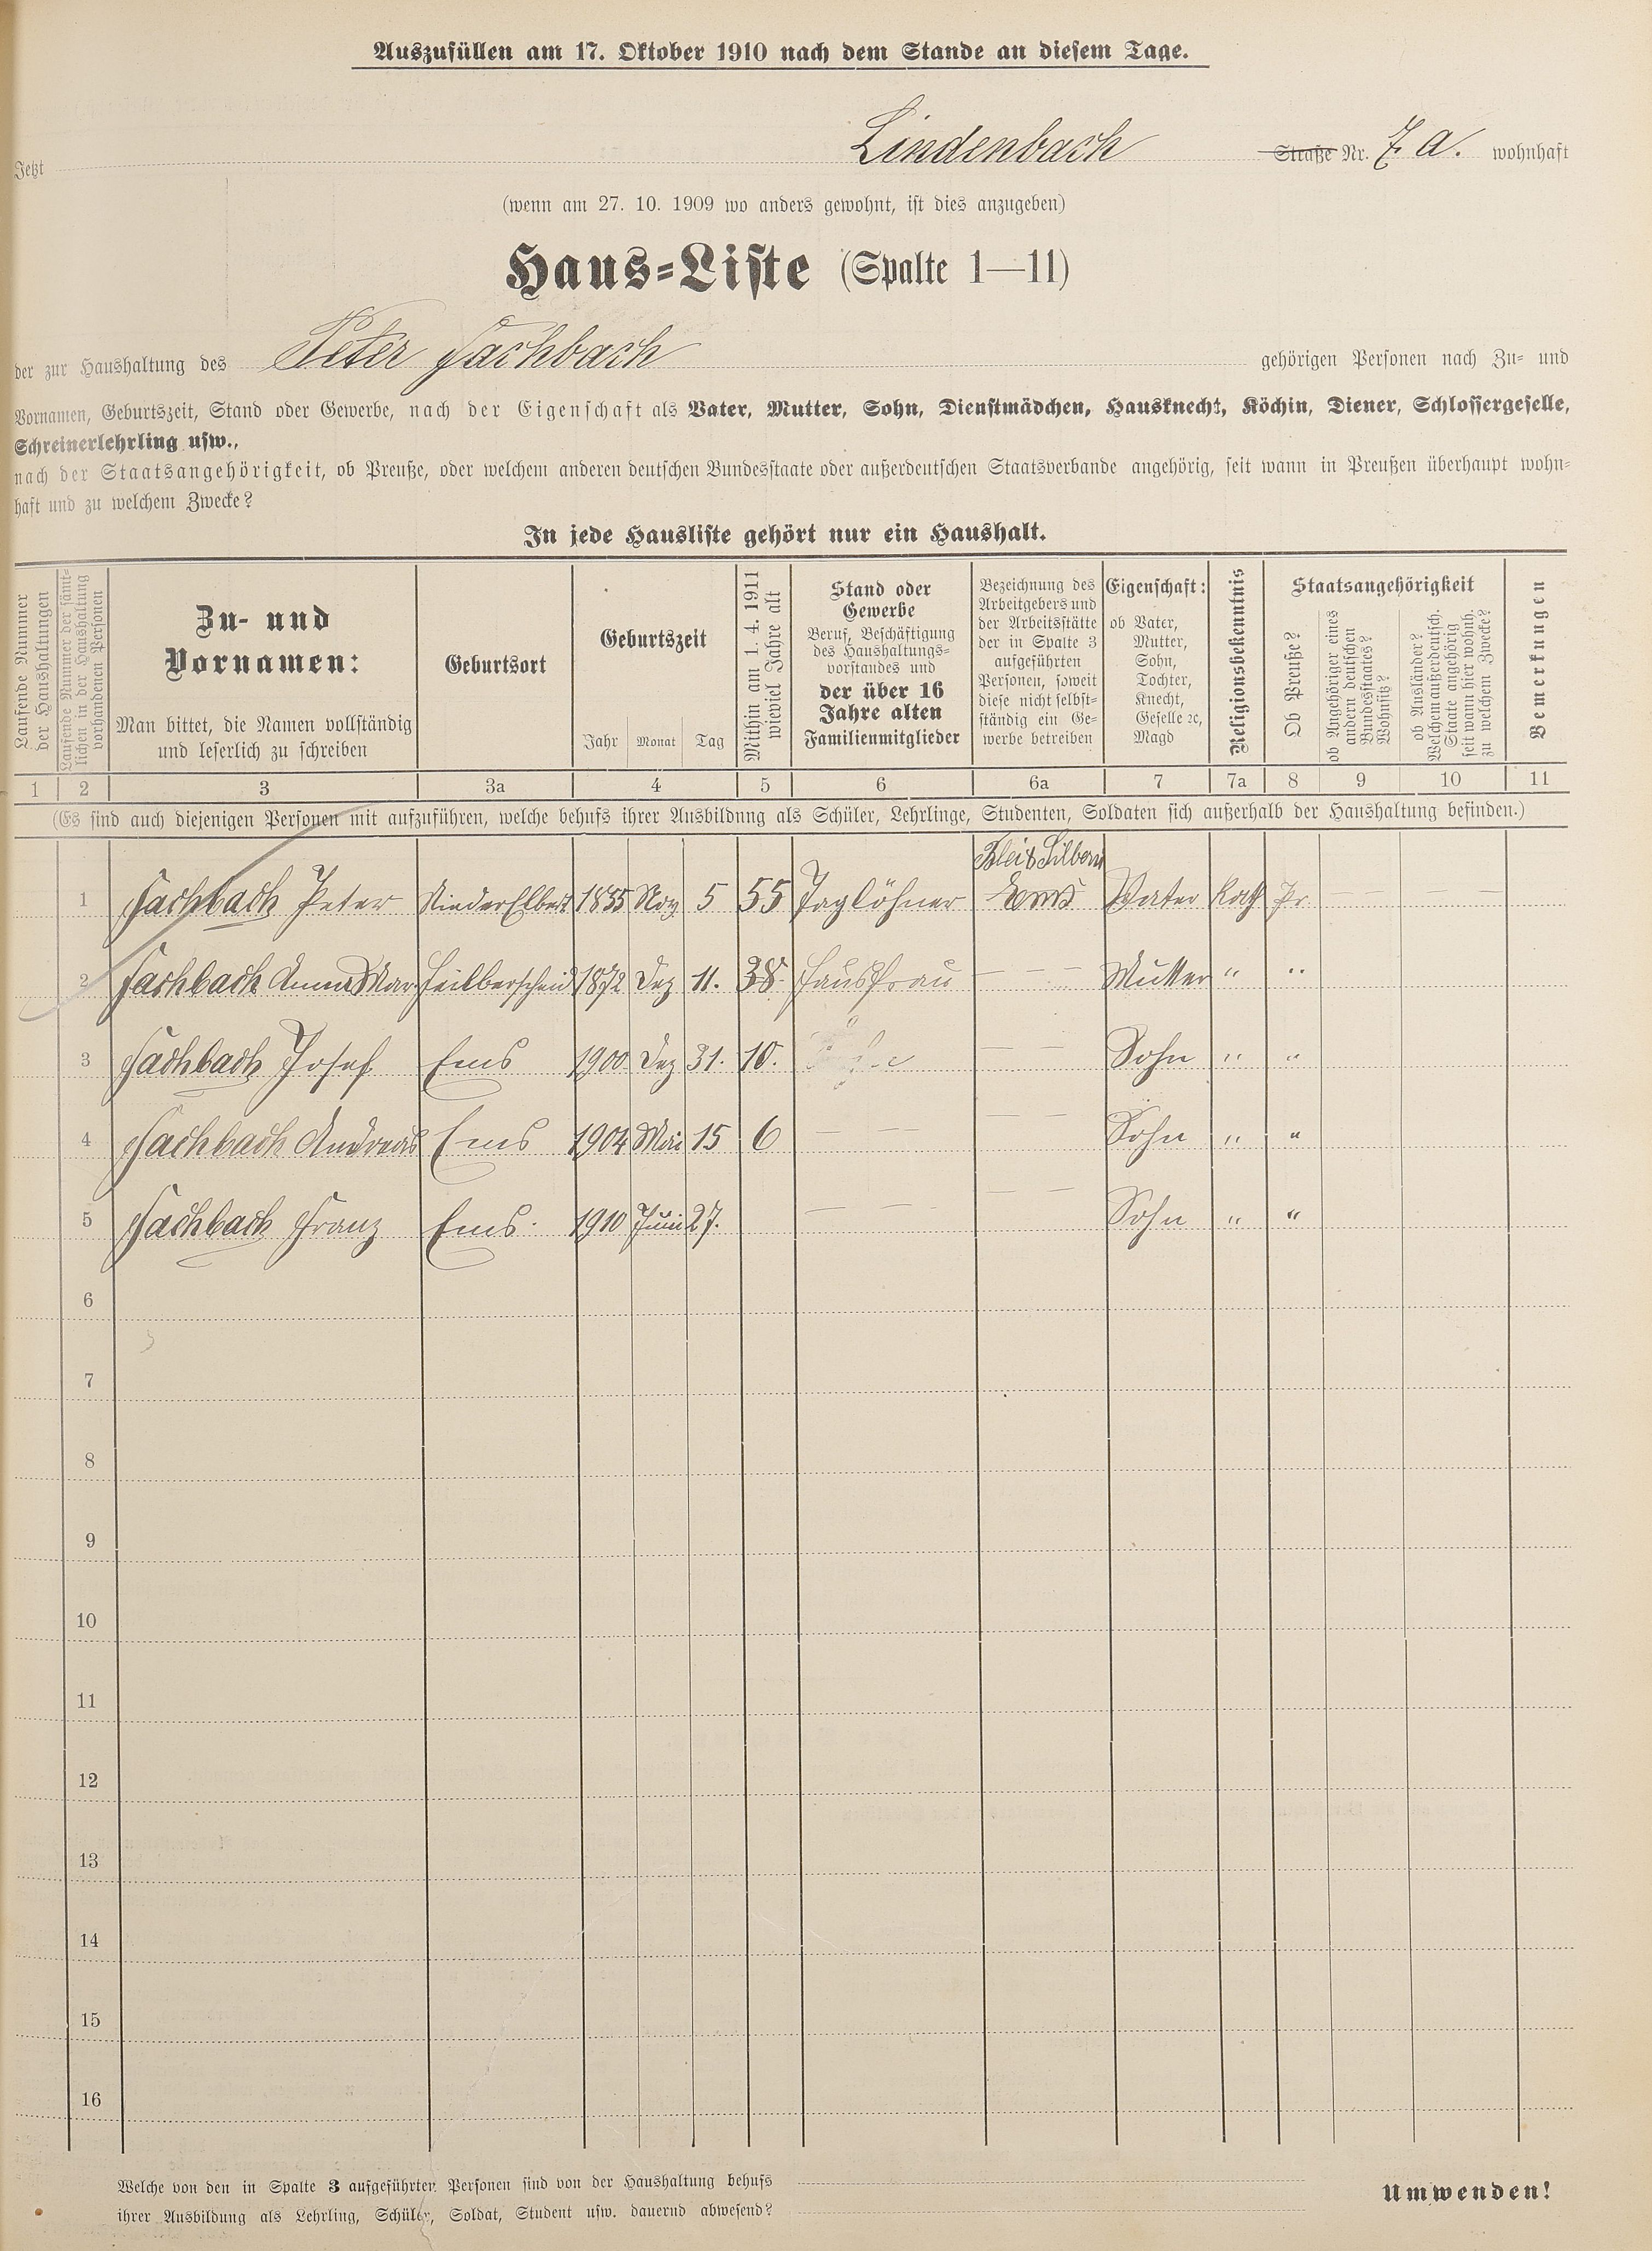 Auszufüllen am 17. Oktober 1910 nach dem Stande an diesem Tage.
Jetzt Lindenbach Straße Nr. 7. a. wohnhaft
(wenn am 27. 10. 1909 wo anders gewohnt, ist dies anzugeben)
Haus-Liste (Spalte 1—11)
der zur Haushaltung des Peter Fachbach gehörigen Personen nach Zu- und
Vornamen, Geburtszeit, Stand oder Gewerbe, nach der Eigenschaft als Vater, Mutter, Sohn, Dienstmädchen, Hausknecht, Köchin, Diener, Schlossergeselle,
Schreinerlehrling usw.,
nach der Staatsangehörigkeit, ob Preuße, oder welchem anderen deutschen Bundesstaate oder außerdeutschen Staatsverbande angehörig, seit wann in Preußen überhaupt wohn-
haft und zu welchem Zwecke?
In jede Hausliste gehört nur ein Haushalt.
Laufende Nummer
der Haushaltungen
Laufende Nummer der sämt-
lichen in der Haushaltung
vorhandenen Personen
Zu- und
Vornamen:
Man bittet, die Namen vollständig
und leserlich zu schreiben
Geburtsort
Geburtszeit
Jahr Monat Tag
Mithin am 1. 4. 1911
wieviel Jahre alt
Stand oder
Gewerbe
Beruf, Beschäftigung
des Haushaltungs-
vorstandes und
der über 16
Jahre alten
Familienmitglieder
Bezeichnung des
Arbeitgebers und
der Arbeitsstätte
der in Spalte 3
aufgeführten
Personen, soweit
diese nicht selbst-
ständig ein Ge-
werbe betreiben
Eigenschaft:
ob Vater,
Mutter,
Sohn,
Tochter,
Knecht,
Geselle ꝛc,
Magd
Religionsbekenntnis
Staatsangehörigkeit
Ob Preuße?
ob Angehöriger eines
andern deutschen
Bundesstaates?
Wohnsitz?
ob Ausländer?
Welchem außerdeutsch.
Staate angehörig
seit wann hier wohnh.
zu welchem Zwecke?
Bemerkungen
1 2 3 3a 4 5 6 6a 7 7a 8 9 10 11
(Es sind auch diejenigen Personen mit aufzuführen, welche behufs ihrer Ausbildung als Schüler, Lehrlinge, Studenten, Soldaten sich außerhalb der Haushaltung befinden.)
1 Fachbach Peter NiederElbert 1855 Nov 5 55 Taglöhner Blei & Silberw Ems Vater Kath Pr. — — — —
2 Fachbach Anna Mar Heilberscheid 1872 Dez 11. 38. Hausfrau — — — Mutter " "
3 Fachbach Josef Ems 1900 Dez 31. 10. — — Sohn " "
4 Fachbach Andreas Ems 1904 Mai 15 6 — — — — — Sohn " "
5 Fachbach Franz Ems. 1910 Juni 27. — — — — — Sohn " "
6
7
8
9
10
11
12
13
14
15
16
Welche von den in Spalte 3 aufgeführten Personen sind von der Haushaltung behufs
ihrer Ausbildung als Lehrling, Schüler, Soldat, Student usw. dauernd abwesend?
Umwenden!